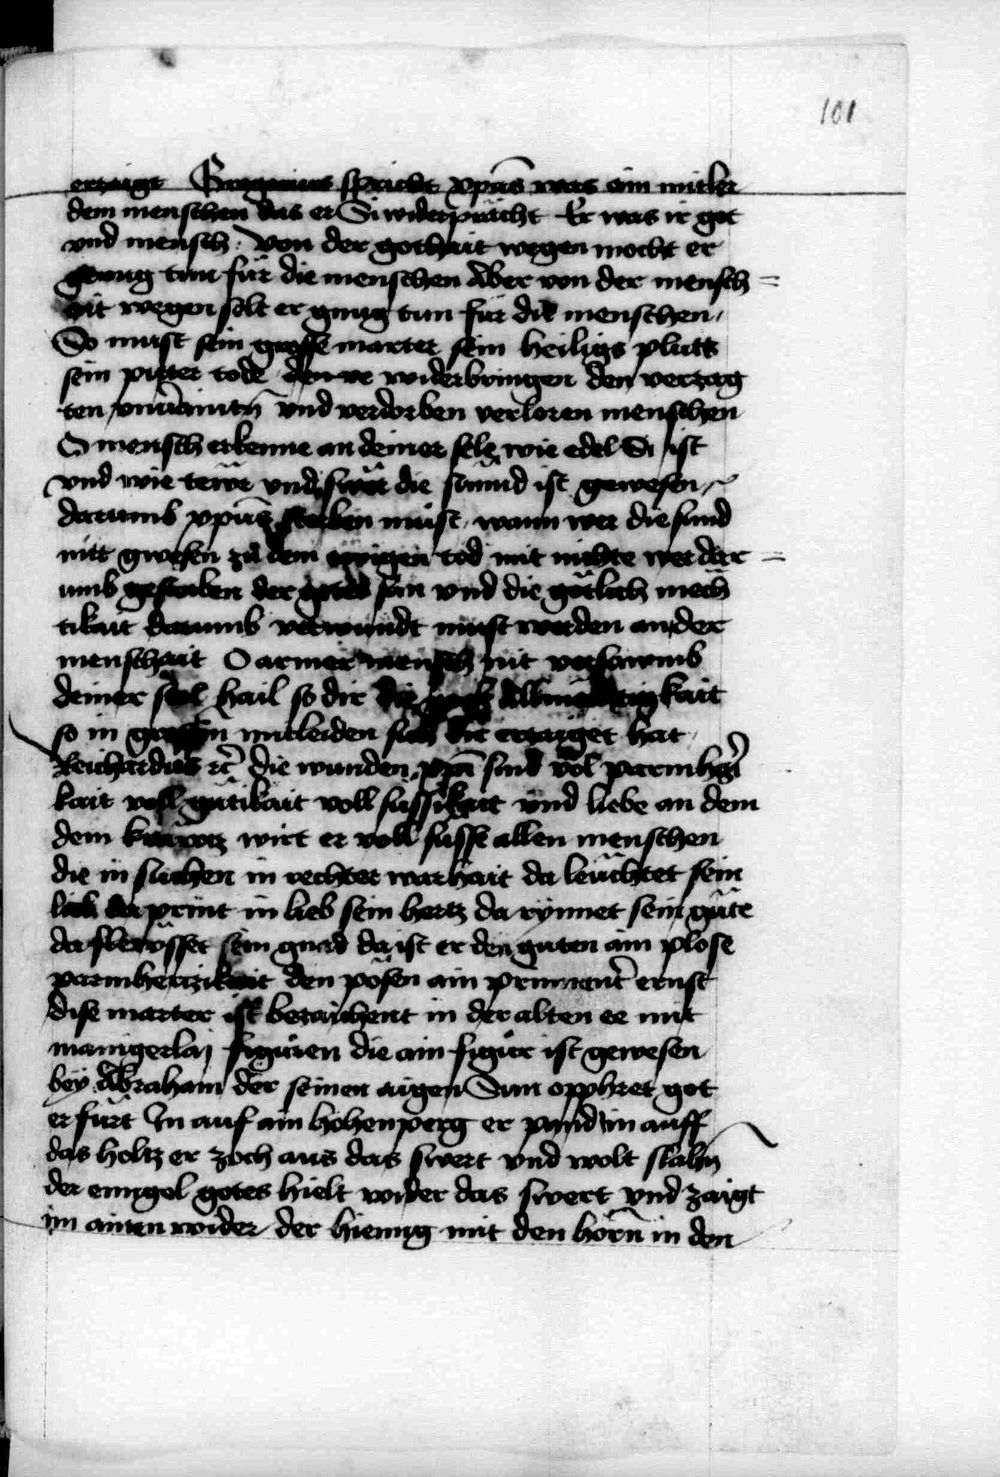 101
erzaigt Gregorius spricht xpūs was ain mitler
dem menschen das er Si widerprācht Er was ir got
vnd mensch. Von der gothait wegen mocht er
genug tun für die menschen Aber von der mensch=
ait wegen solt er gnug tun für die menschen
So must sein grosse marter sein heiligs pluts
sein pitter tode widerbringen den verzag
ten vnd verdorben verloren menschen
O mensch erkenne an deiner sele wie edel Si ist
vnd wie tewr vnd swär die sünnd ist gewesen
darumb xpūs sterben müst. wann wer die sund
nitt gwesen zü dem ewigen tod mit nichte wer dar=
umb gestorben der gotes sun vnd die götlich mäch
tikait darumb verwundt must werden an der
menschait O armer mensch nit versawmb
deiner sel hail so dir die gotz Allmächtigkait
so in grossen mitleiden sich dir erzaiget hat
Reichardus rc̄ die wunden xpī sind vol parmhgi
kait voll gütikait voll süssikait vnd liebe an dem
dem krewtz wirt er voll süsse allen menschen
die in suchen in rechter warhait da leüchtet sein
lieb da print in lieb sein hertz da rynnet sein güte
da fleüsset sein gnad da ist er den guten ain plose
parmhertzikait den pösen ain prinnent̄ ernst
dise marter ist bezaichent in der alten ee mit
manigerlaj figuren die ain figür ist gewesen
bëy Abraham der seinen aigen Sun opphret got
er fürt In auf ain hohen perg er pand in auff
das holtz er zoch aus das swert vnd wolt slahn
der enngel gotes hielt wider das swert vnd zaigt
im ainen wider der hienng mit den hörn̄ in den